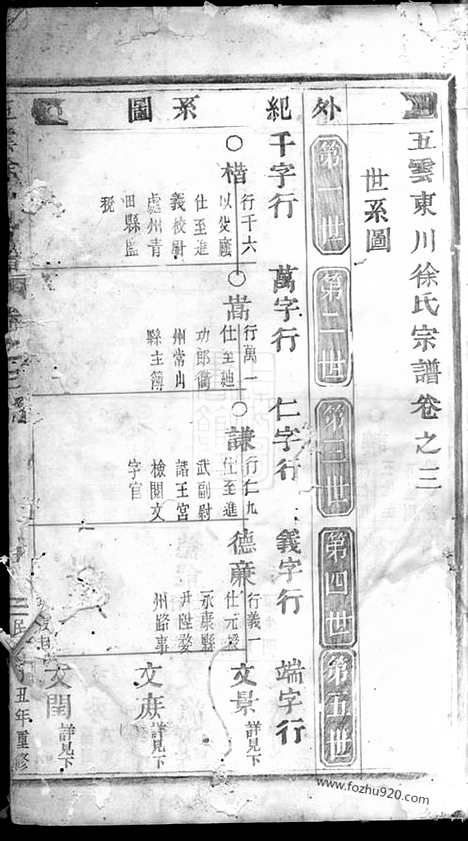 五雲東川徐氏宗譜卷之三
世系圖
外紀系圖
第一世
第二世
第三世
第四世
第五世
千字行
萬字行
仁字行
義字行
端字行
楷
行千六
以父廕
仕至進
義校尉
處州青
田縣監
稅
嵩
行萬一
仕至廸
功郎衢
州常山
縣主簿
謙
行仁九
仕至進
武副尉
諸王宮
檢閱文
字官
德廉
行義一
仕元授
永康縣
尹陞婺
州路事
文景 詳見下
文庶 詳見下
文閏 詳見下
丑年重修
www.fozhu920.com